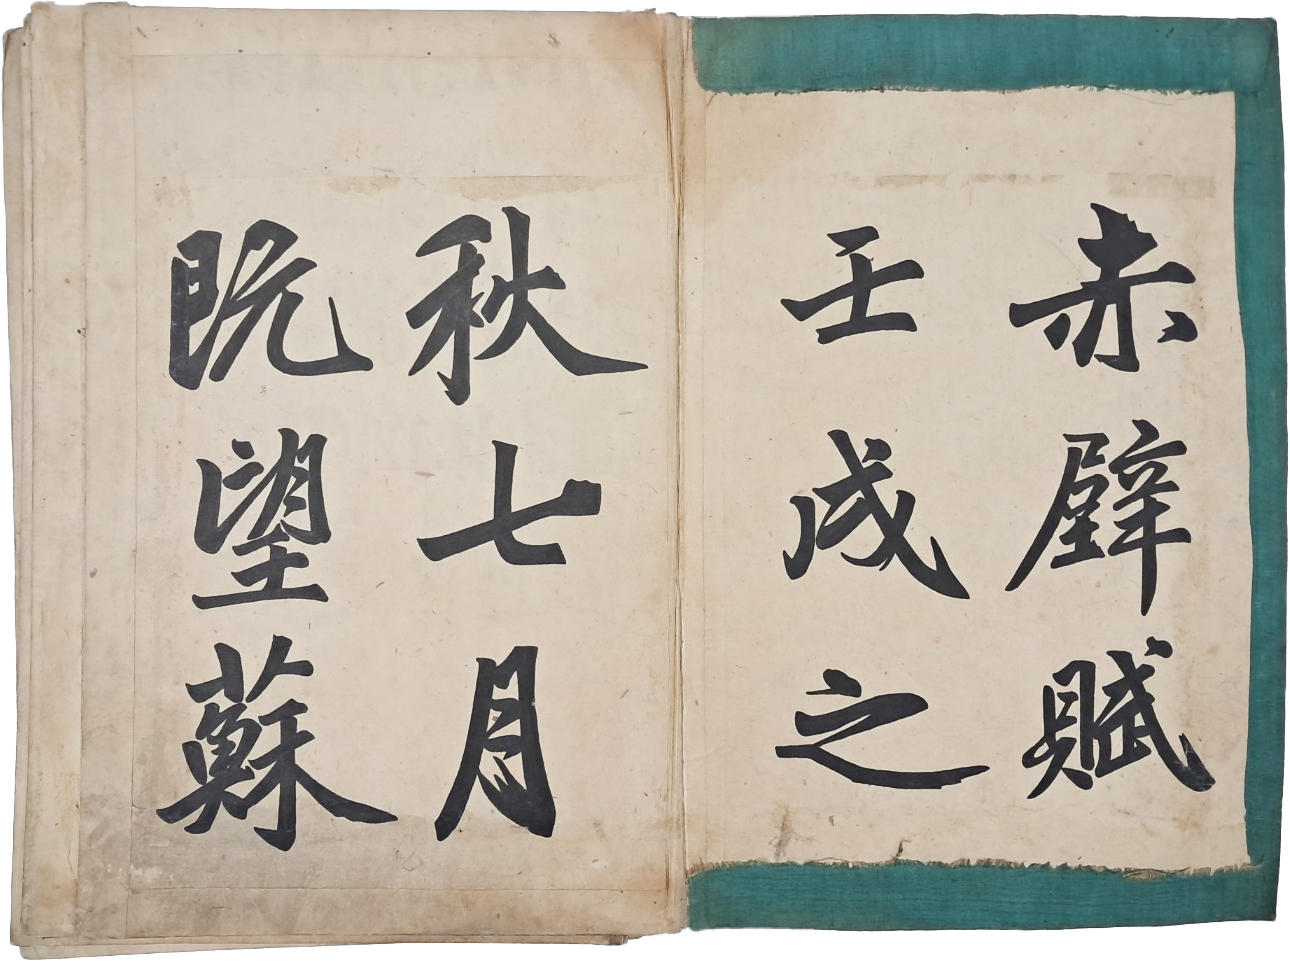 赤壁賦
壬戌之
秋七月
既望蘇